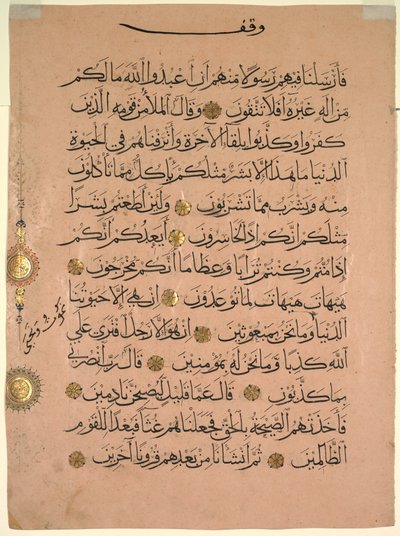 وقف
فأرسلنا فيهم رسولا منهم أن اعبدوا الله ما لكم
من إله غيره أفلا تتقون وقال الملأ من قومه الذين
كفروا وكذبوا بلقاء الآخرة وأترفناهم في الحيوة
الدنيا ما هذا إلا بشر مثلكم يأكل مما تأكلون
منه ويشرب مما تشربون ولئن أطعتم بشرا
مثلكم إنكم إذا لخاسرون أيعدكم أنكم
إذا متم وكنتم ترابا وعظاما أنكم مخرجون
هيهات هيهات لما توعدون إن هي إلا حيوتنا
الدنيا وما نحن بمبعوثين إن هو إلا رجل افترى على
الله كذبا وما نحن له بمؤمنين قال رب انصرني
بما كذبون قال عما قليل ليصبحن نادمين
فأخذتهم الصيحة بالحق فجعلناهم غثاء فبعدا للقوم
الظالمين ثم أنشأنا من بعدهم قرونا آخرين
نموت ونحيى